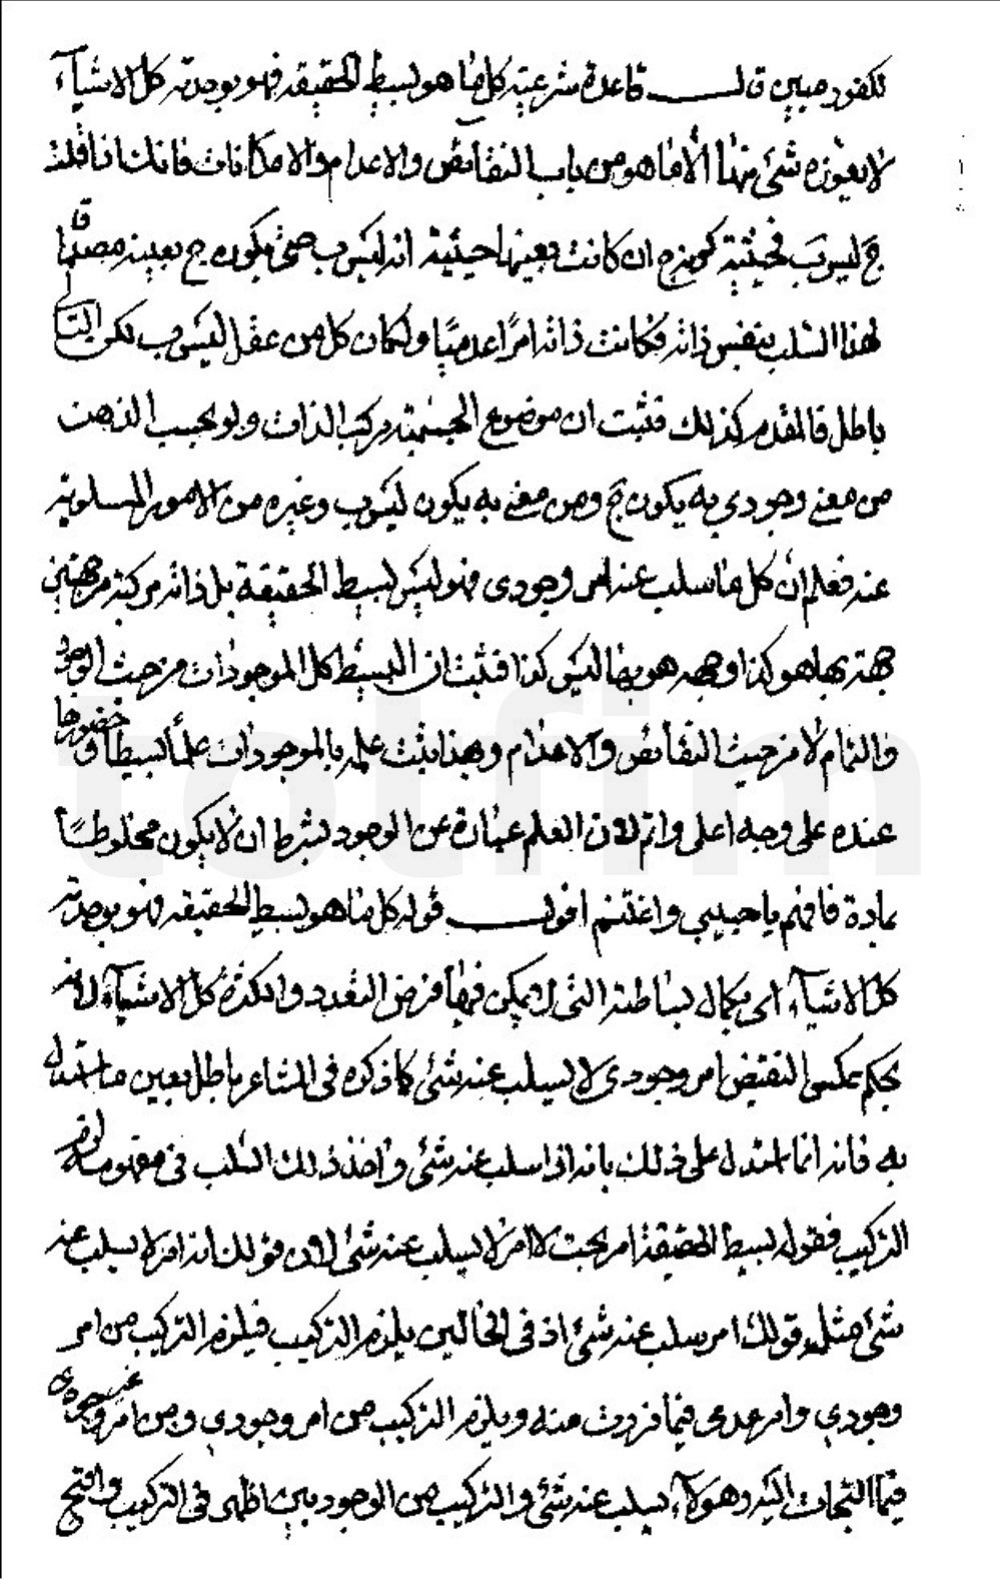 لكفور مبين قال قاعدة مشرعية كل ما هو بسيط الحقيقة فهو بوحدته كل الاشياء
لا يعوزه شئ منها الا ما هو من باب النقائص والاعدام والامكانات فانك اذا قلت
ج ليس ب فحيثية كونه ج ان كانت بعينها حيثية انه ليس ب حتى يكون ج بعينه مصداقا
لهذا السلب بنفس ذاته فكانت ذاته امرًا عدميًا ولكان كل من عقل ليس ب لكن التا
باطل فالمقدم كذلك فثبت ان موضوع الجسمية مركب الذات ولو بحسب الذهن
من معنى وجودي به يكون ج ومن معنى به يكون ليس ب وغيره من الامور المسلوبة
عنه فعلم ان كل ما سلب عنه امر وجودي فهو ليس بسيط الحقيقة بل ذاته مركبة من جهتين
جهة بها هو كذا وجهة هو بها ليس كذا فثبت ان البسيط كل الموجودات من حيث الوجود
والتمام لا من حيث النقائص والاعدام وبهذا يثبت علمه بالموجودات علمًا بسيطا وحضورها
عنده على وجه اعلى واتم لان العلم عبارة عن الوجود بشرط ان لا يكون مخلوطًا
بمادة فافهم يا حبيبي واغتنم اقول قوله كل ما هو بسيط الحقيقة فهو بوحدته
كل الاشياء اي بكمال بساطته التي لا يمكن فيها فرض التعدد والكثرة كل الاشياء لانه
بحكم عكس النقيض امر وجودي لا يسلب عنه شئ كما ذكره في المشاعر باطل بعين ما استدل
به فانه انما استدل على ذلك بانه اذا سلب عنه شئ واخذ ذلك السلب في مفهومه لزم
التركيب فقوله بسيط الحقيقة امر بحت لا امر لا يسلب عنه شئ لان قولك انه امر لا يسلب عنه
شئ مثل قولك امر سلب عنه شئ اذ في الحالين يلزم التركيب فيلزم التركيب من امر
وجودي وامر عدمي فيما فررت منه ويلزم التركيب من امر وجودي ومن امر وجودي
فيما التجأت اليه وهو لا يسلب عنه شئ والتركيب من الوجوديين اظهر في التركيب واقبح